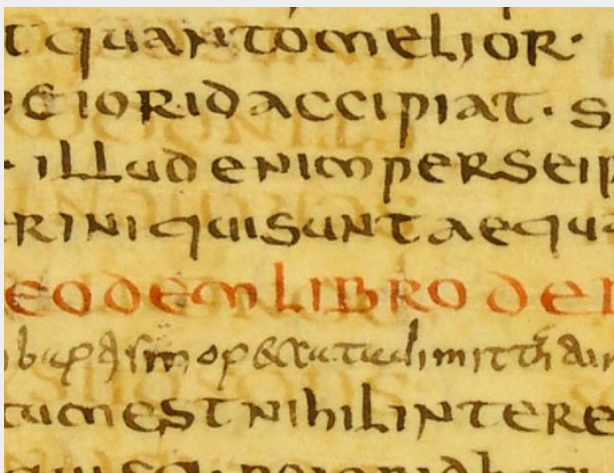 t quanto melior·
eiorid accipiat· s
· illud enim per se ip
rini qui sunt aequ
eodem libro de
tum est nihil intere